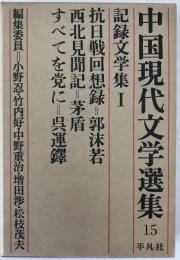 中国現代文学選集
15
平凡社
記録文学集Ⅰ
抗日戦回想録＝郭沫若
西北見聞記＝茅盾
すべてを党に＝呉運鐸
編集委員＝小野忍・竹内好・中野重治・増田渉・松枝茂夫